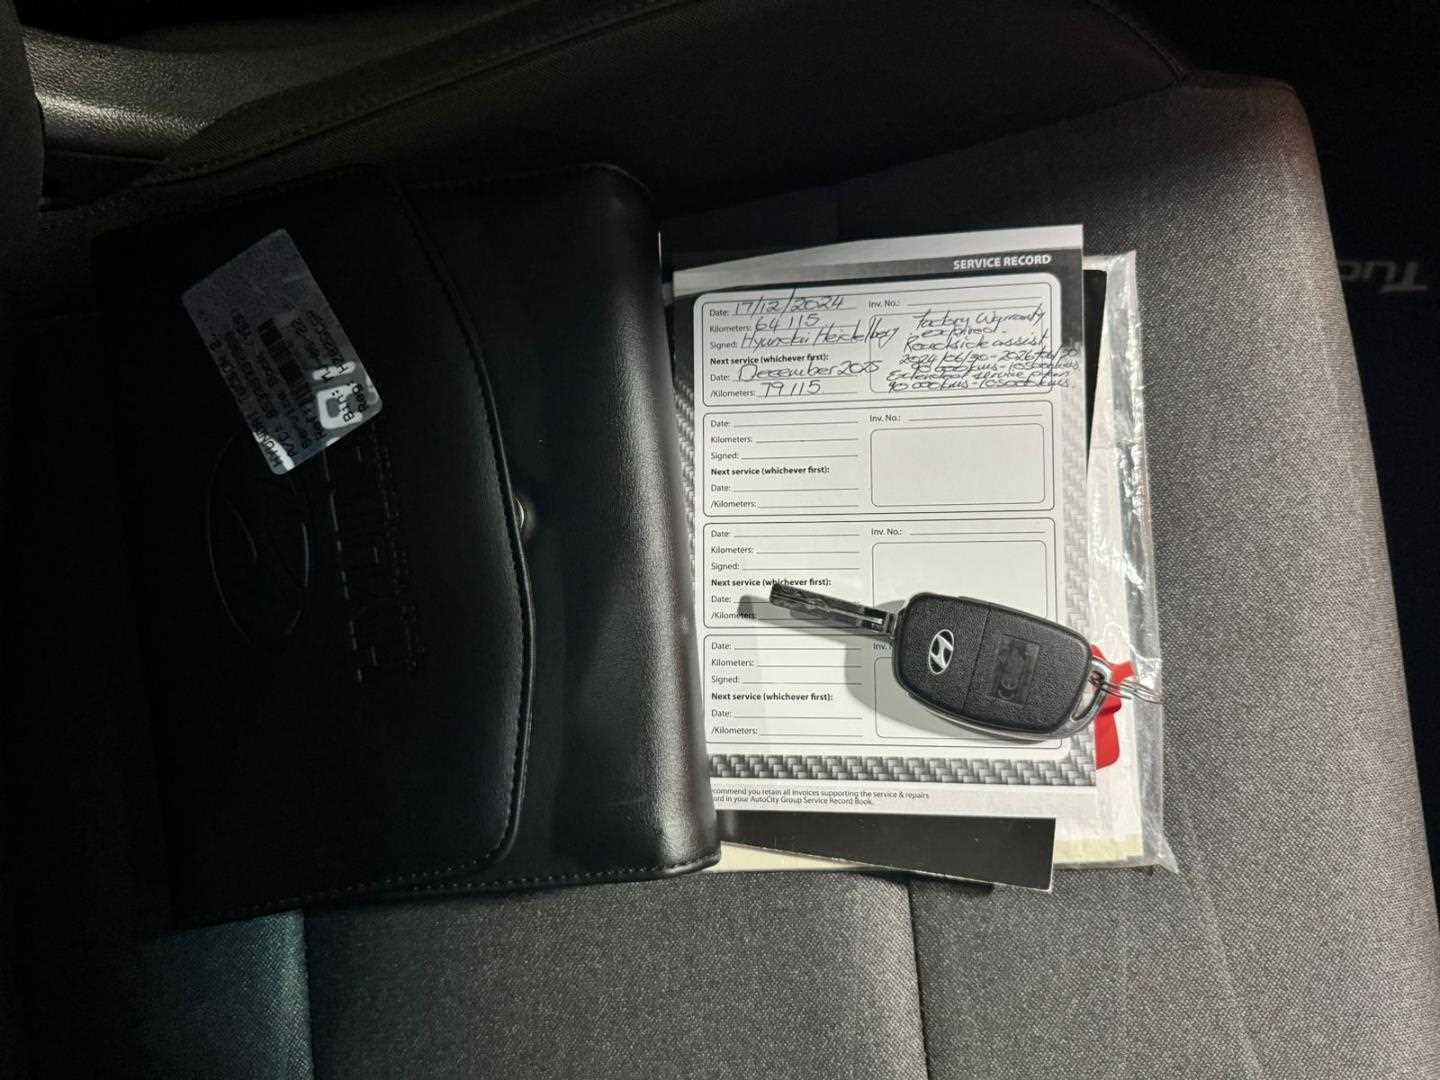 SERVICE RECORD
Date: 17/12/2024 Inv. No.:
Kilometers: 64 115
Signed: Hyundai Heidelberg
Next service (whichever first):
Date: December 2025
/Kilometers: 79 115
Factory Warranty
expired.
Roadside assist
2024/06/30 - 2026/06/30
90 000 kms - 105000 kms.
service plan
90 000 kms - 105000 kms.
Date: Inv. No.:
Kilometers:
Signed:
Next service (whichever first):
Date:
/Kilometers:
Date: Inv. No.:
Kilometers:
Signed:
Next service (whichever first):
Date:
/Kilometers:
Date: Inv.
Kilometers:
Signed:
Next service (whichever first):
Date:
/Kilometers:
commend you retain all invoices supporting the service & repairs
ord in your AutoCity Group Service Record Book.
HYUNDAI
CE
Tuc